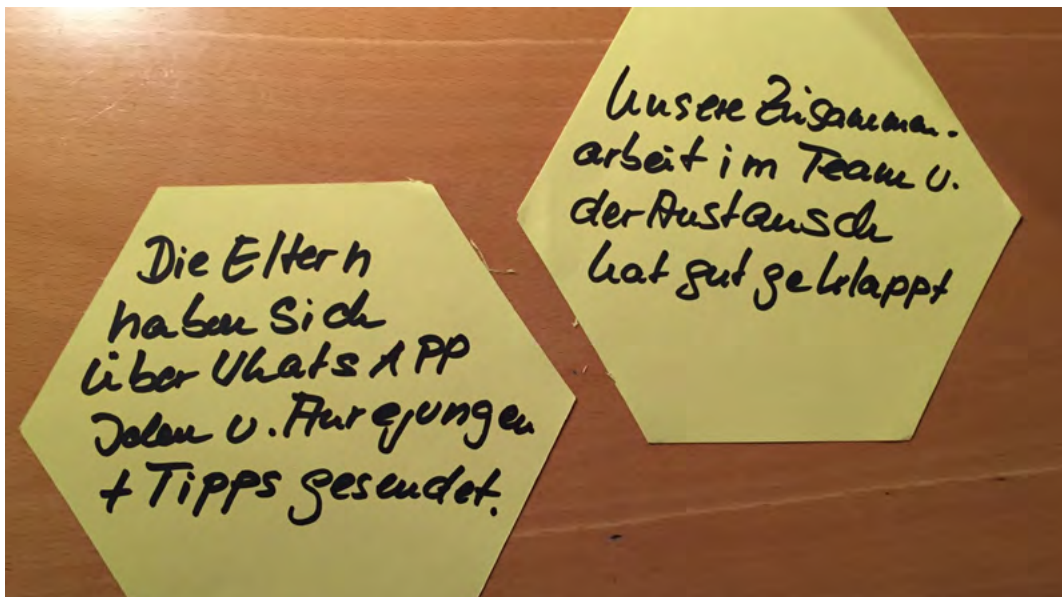 Die Eltern
haben sich
über WhatsAPP
Ideen u. Anregungen
+ Tipps gesendet.
Unsere Zusammen-
arbeit im Team u.
der Austausch
hat gut geklappt